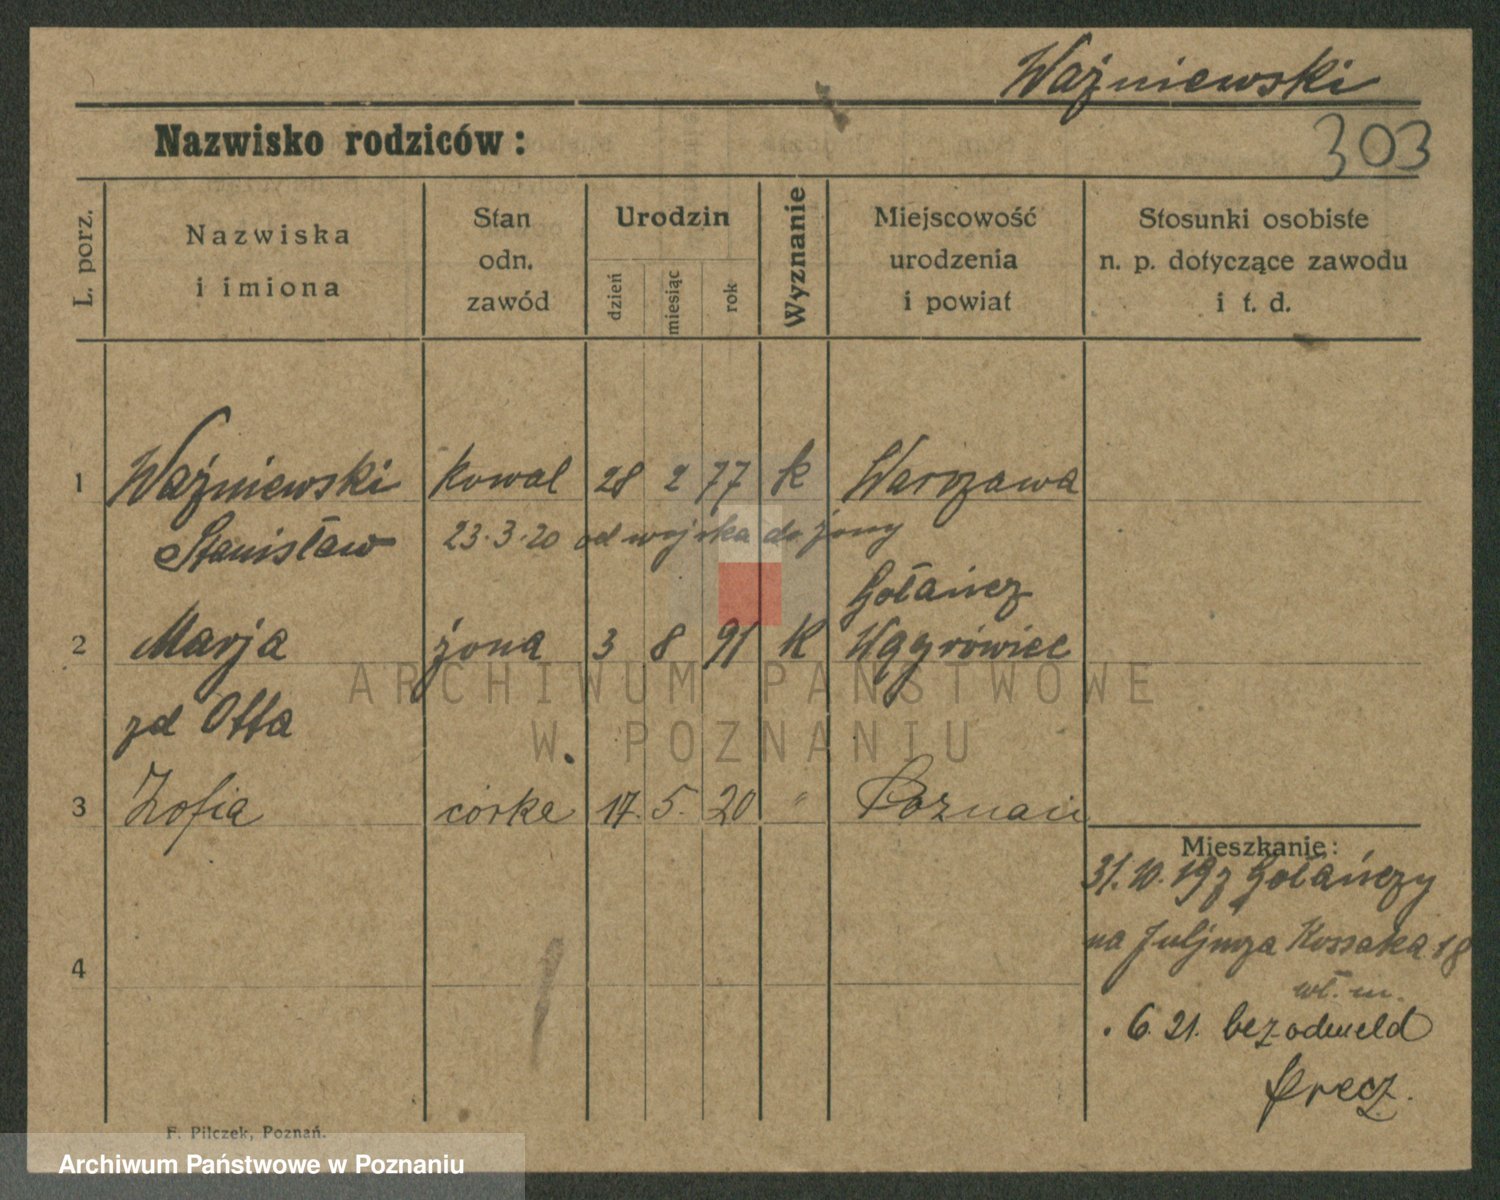 Ważniewski
Nazwisko rodziców:
303
L. porz.
Nazwiska
i imiona
Stan
odn.
zawód
Urodzin
dzień
miesiąc
rok
Wyznanie
Miejscowość
urodzenia
i powiat
Stosunki osobiste
n. p. dotyczące zawodu
i t. d.
1 Ważniewski kowal 28 2 77 k Warszawa
Stanisław 23.3.20 od wojska do żony
Gołańcz
2 Marja żona 3 8 91 k Wągrówiec
zd Otta
3 Zofia córka 17. 5. 20 " Poznań
Mieszkanie:
31.10.19 z Gołańczy
na Juljusza Kossaka 18
wł. m.
4
. 6. 21. bez odmeld
precz.
F. Pilczek, Poznań.
ARCHIWUM PAŃSTWOWE
W POZNANIU
Archiwum Państwowe w Poznaniu